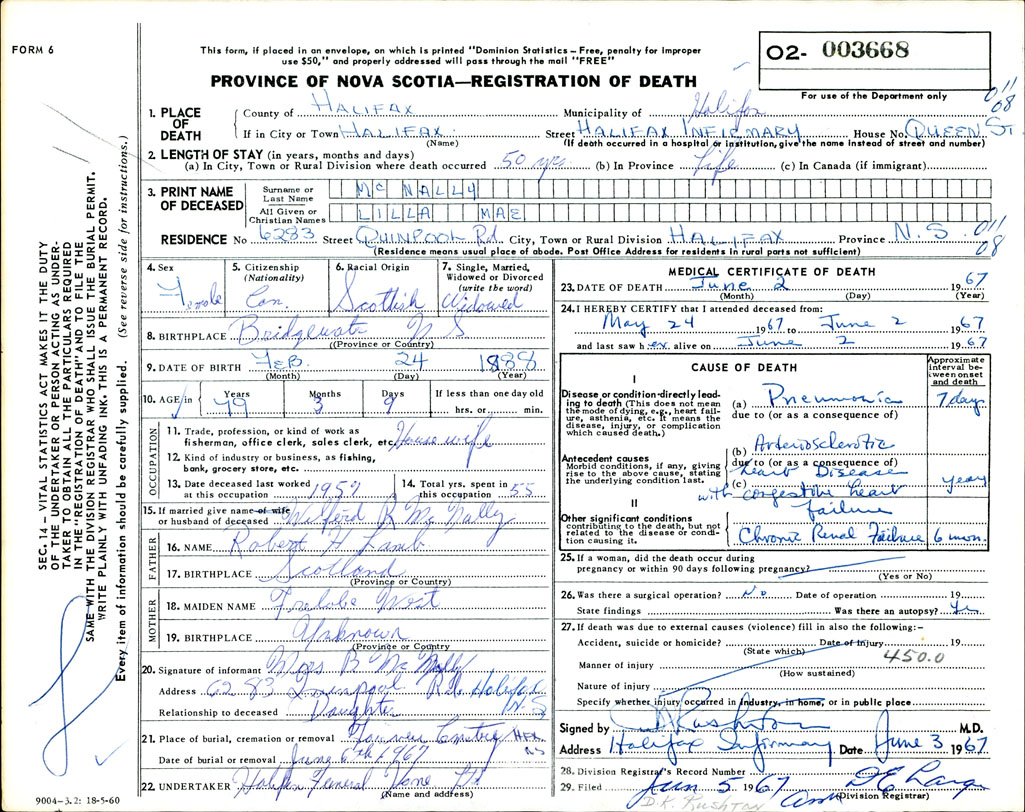 FORM 6
This form, if placed in an envelope, on which is printed "Dominion Statistics – Free, penalty for improper
use $50," and properly addressed will pass through the mail "FREE"
02- 003668
For use of the Department only
PROVINCE OF NOVA SCOTIA—REGISTRATION OF DEATH
011
08
1. PLACE OF DEATH
County of HALIFAX Municipality of Halifax
If in City or Town HALIFAX. Street HALIFAX INFIRMARY House No. QUEEN ST
(Name) (If death occurred in a hospital or institution, give the name instead of street and number)
2. LENGTH OF STAY (in years, months and days)
(a) In City, Town or Rural Division where death occurred 50 yrs. (b) In Province Life (c) In Canada (if immigrant)
3. PRINT NAME OF DECEASED
Surname or Last Name Mc NALLY
All Given or Christian Names LILLA MAE
RESIDENCE No 6283 Street QUINPOOL Rd. City, Town or Rural Division HALIFAX Province N.S. 011
08
(Residence means usual place of abode. Post Office Address for residents in rural parts not sufficient)
4. Sex Female
5. Citizenship (Nationality) Can.
6. Racial Origin Scottish
7. Single, Married, Widowed or Divorced (write the word) Widowed
8. BIRTHPLACE Bridgewater N S
(Province or Country)
9. DATE OF BIRTH FEB. 24 1888
(Month) (Day) (Year)
10. AGE in Years 79 Months 3 Days 9 If less than one day old
hrs. or min.
OCCUPATION
11. Trade, profession, or kind of work as
fisherman, office clerk, sales clerk, etc. Housewife
12. Kind of industry or business, as fishing,
bank, grocery store, etc.
13. Date deceased last worked
at this occupation 1957
14. Total yrs. spent in
this occupation 55
15. If married give name of wife
or husband of deceased Wilfred R Mc Nally
FATHER
16. NAME Robert H Lamb
17. BIRTHPLACE Scotland
(Province or Country)
MOTHER
18. MAIDEN NAME West
19. BIRTHPLACE Unknown
(Province or Country)
20. Signature of informant Miss B Mc Nally
Address 6283 Quinpool Rd. Halifax
N S
Relationship to deceased Daughter
21. Place of burial, cremation or removal Fairview Cemetery HFX
NS
Date of burial or removal June 6th 1967
22. UNDERTAKER Halifax Funeral Home Ltd
(Name and address)
9004-3.2: 18-5-60
MEDICAL CERTIFICATE OF DEATH
23. DATE OF DEATH June 2 1967
(Month) (Day) (Year)
24. I HEREBY CERTIFY that I attended deceased from:
May 24 1967 to June 2 1967
and last saw her alive on June 2 1967
CAUSE OF DEATH
Approximate interval between onset and death
I
Disease or condition directly leading to death (This does not mean
the mode of dying, e.g., heart failure, asthenia, etc. It means the
disease, injury, or complication
which caused death.)
(a) Pneumonia 7 days
due to (or as a consequence of)
Antecedent causes
Morbid conditions, if any, giving
rise to the above cause, stating
the underlying condition last.
(b) Arteriosclerotic
due to (or as a consequence of)
heart Disease
(c) with congestive heart failure years
II
Other significant conditions
contributing to the death, but not
related to the disease or condition causing it.
Chronic Renal Failure 6 mon.
25. If a woman, did the death occur during
pregnancy or within 90 days following pregnancy?
(Yes or No)
26. Was there a surgical operation? No Date of operation 19
State findings Was there an autopsy? Yes
27. If death was due to external causes (violence) fill in also the following:–
Accident, suicide or homicide? Date of Injury 19
(State which) 450.0
Manner of injury
(How sustained)
Nature of injury
Specify whether injury occurred in Industry, in home, or in public place
Signed by Rushton M.D.
Address Halifax Infirmary Date June 3 1967
28. Division Registrar's Record Number
29. Filed Jun 5 1967
D.K. RUSHTON
(Division Registrar)
SEC. 14 – VITAL STATISTICS ACT MAKES IT THE DUTY
OF THE UNDERTAKER OR PERSON ACTING AS UNDERTAKER TO OBTAIN ALL THE PARTICULARS REQUIRED
IN THE "REGISTRATION OF DEATH" AND TO FILE THE
SAME WITH THE DIVISION REGISTRAR WHO SHALL ISSUE THE BURIAL PERMIT.
WRITE PLAINLY WITH UNFADING INK. THIS IS A PERMANENT RECORD.
Every item of information should be carefully supplied. (See reverse side for instructions.)